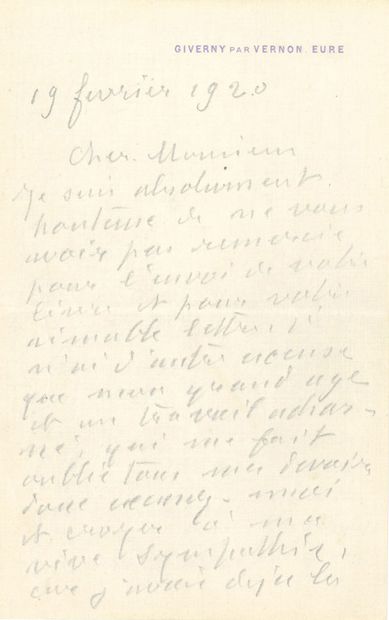 GIVERNY PAR VERNON. EURE
19 fevrier 1920
Cher Monsieur
Je suis absolument
honteux de ne vous
avoir pas remercie
pour l'envoi de votre
livre et pour votre
aimable lettre. J
n'ai d'autre excuse
que mon grand age
et un travail achar-
né, qui me fait
oublie tous mes devoirs
donc excusez-moi
et croyez à ma
vive sympathie,
que j'avais deja lu